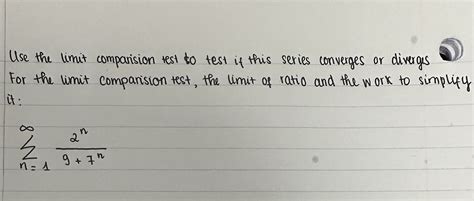 Use the limit comparision test to test if this series converges or divergs
For the limit comparision test, the limit of ratio and the work to simplify
it:
∞
Σ 2^n / (9 + 7^n)
n = 1